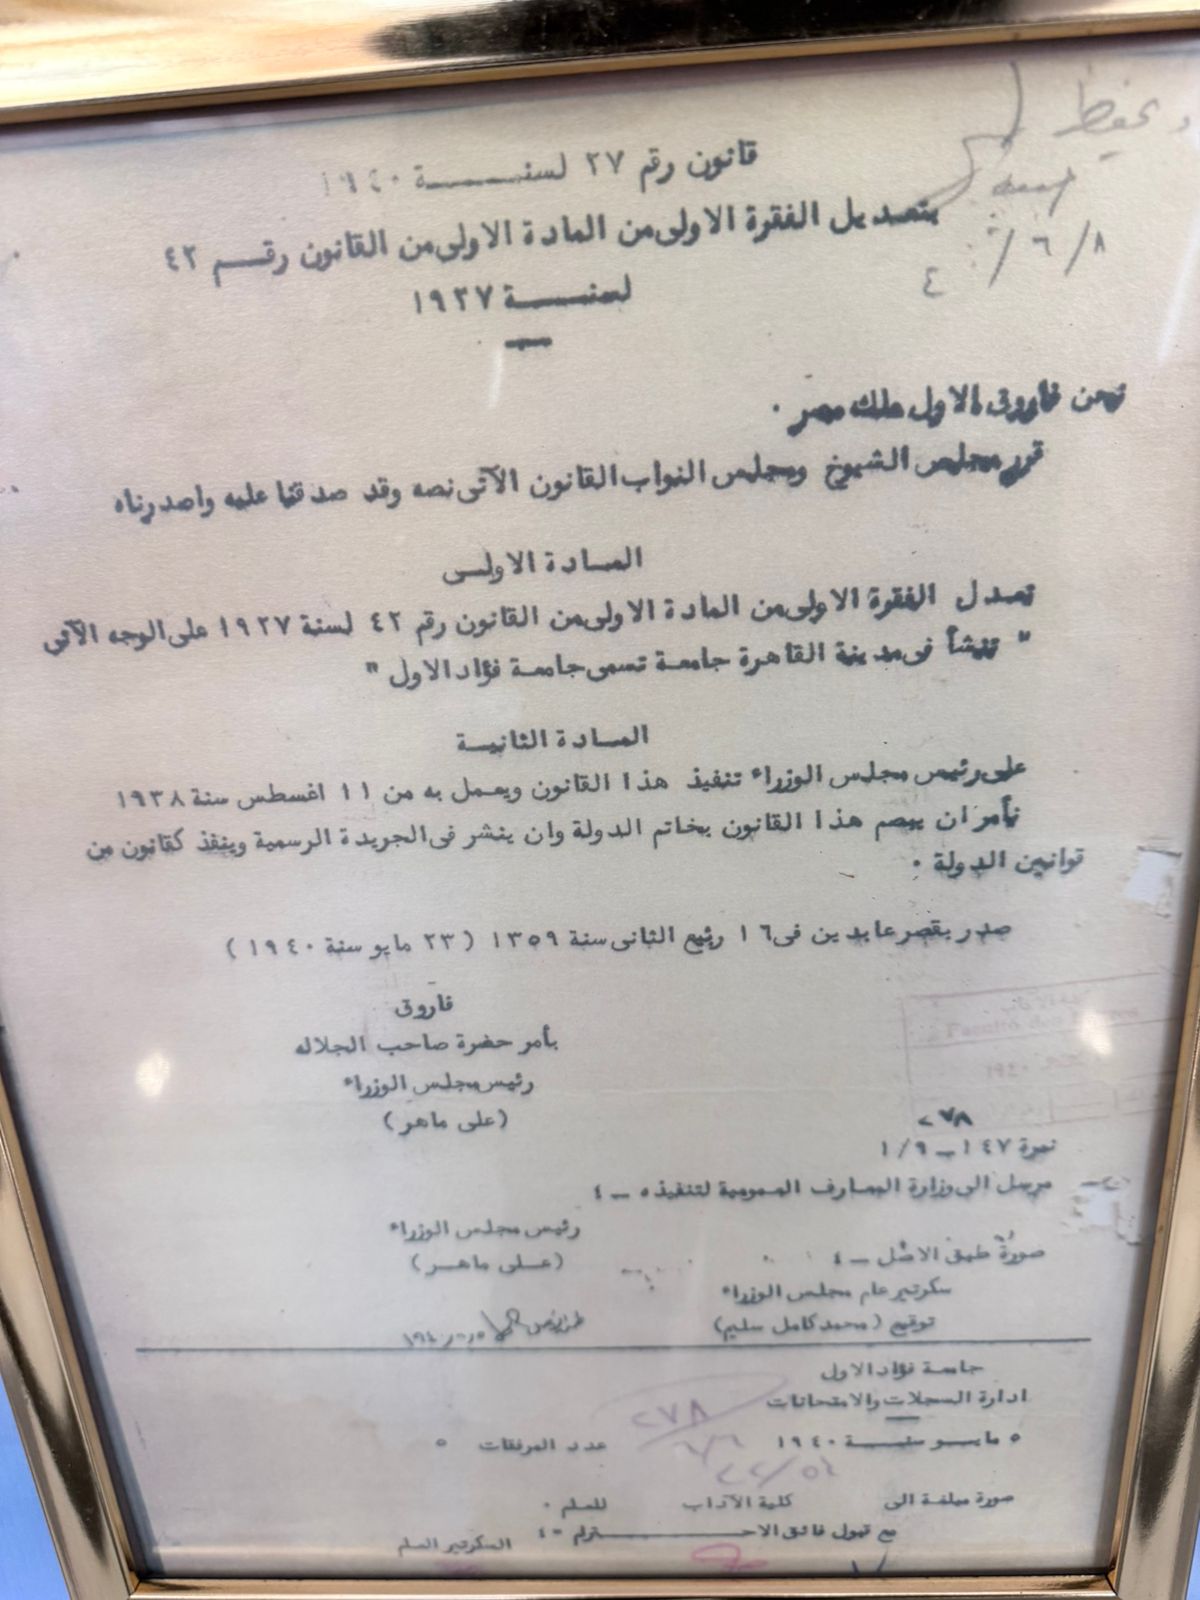 ويحفظ
٨/٦/
٤
قانون رقم ٢٧ لسنة ١٩٤٠
بتعديل الفقرة الاولى من المادة الاولى من القانون رقم ٤٢
لسنة ١٩٢٧
نحن فاروق الاول ملك مصر ٠
قرر مجلس الشيوخ ومجلس النواب القانون الآتى نصه وقد صدقنا عليه واصدرناه
المادة الاولى
تعدل الفقرة الاولى من المادة الاولى من القانون رقم ٤٢ لسنة ١٩٢٧ على الوجه الآتى
" تنشأ فى مدينة القاهرة جامعة تسمى جامعة فؤاد الاول "
المادة الثانية
على رئيس مجلس الوزراء تنفيذ هذا القانون ويعمل به من ١١ اغسطس سنة ١٩٣٨
نأمر ان يبصم هذا القانون بخاتم الدولة وان ينشر فى الجريدة الرسمية وينفذ كقانون من
قوانين الدولة ٠
صدر بقصر عابدين فى ١٦ ربيع الثانى سنة ١٣٥٩ ( ٢٣ مايو سنة ١٩٤٠ )
فاروق
بأمر حضرة صاحب الجلاله
رئيس مجلس الوزراء
(على ماهر)
٢٧٨
نمرة ١٤٧ – ١/٩
مرسل الى وزارة المعارف العمومية لتنفيذه – ٤
رئيس مجلس الوزراء
(على ماهر)
صورة طبق الاصل – ٤
سكرتير عام مجلس الوزراء
توقيع (محمد كامل سليم)
جامعة فؤاد الاول
ادارة السجلات والامتحانات
٢٧٨
٥ مايو سنة ١٩٤٠ عدد المرفقات ٥
صورة مبلغة الى كلية الآداب للعلم ٠
مع قبول فائق الاحترام ٤٠
السكرتير العام